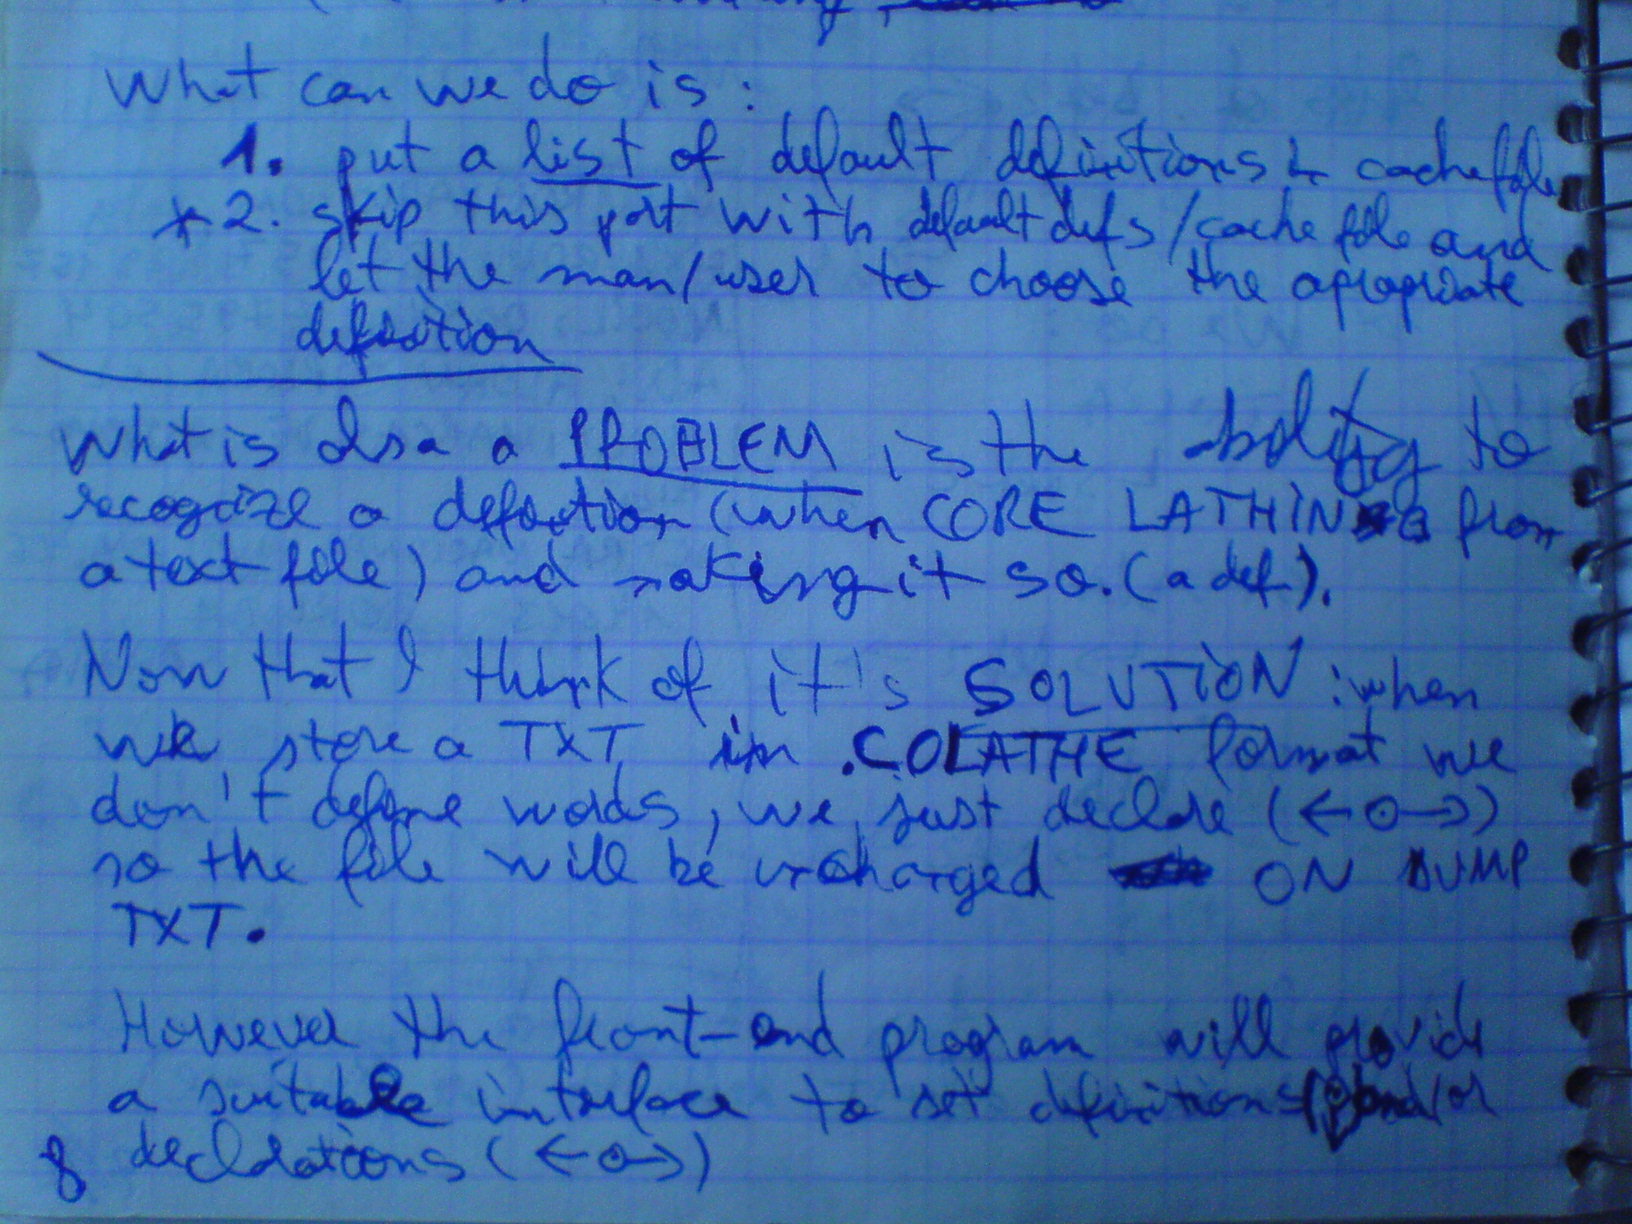 What can we do is:
1. put a list of default definitions & cache file
* 2. skip this part with default defs/cache file and
let the man/user to choose the apropriate
definition
What is also a PROBLEM is the ability to
recognize a definition (when CORE LATHING from
a text file) and making it so. (a def).
Now that I think of it's SOLUTION: when
we store a TXT in .COLATHE format we
don't define words, we just declare (←o→)
so the file will be uncharged ON DUMP
TXT.
However the front-end program will provide
a suitable interface to set definitions and/or
declarations (←o→)